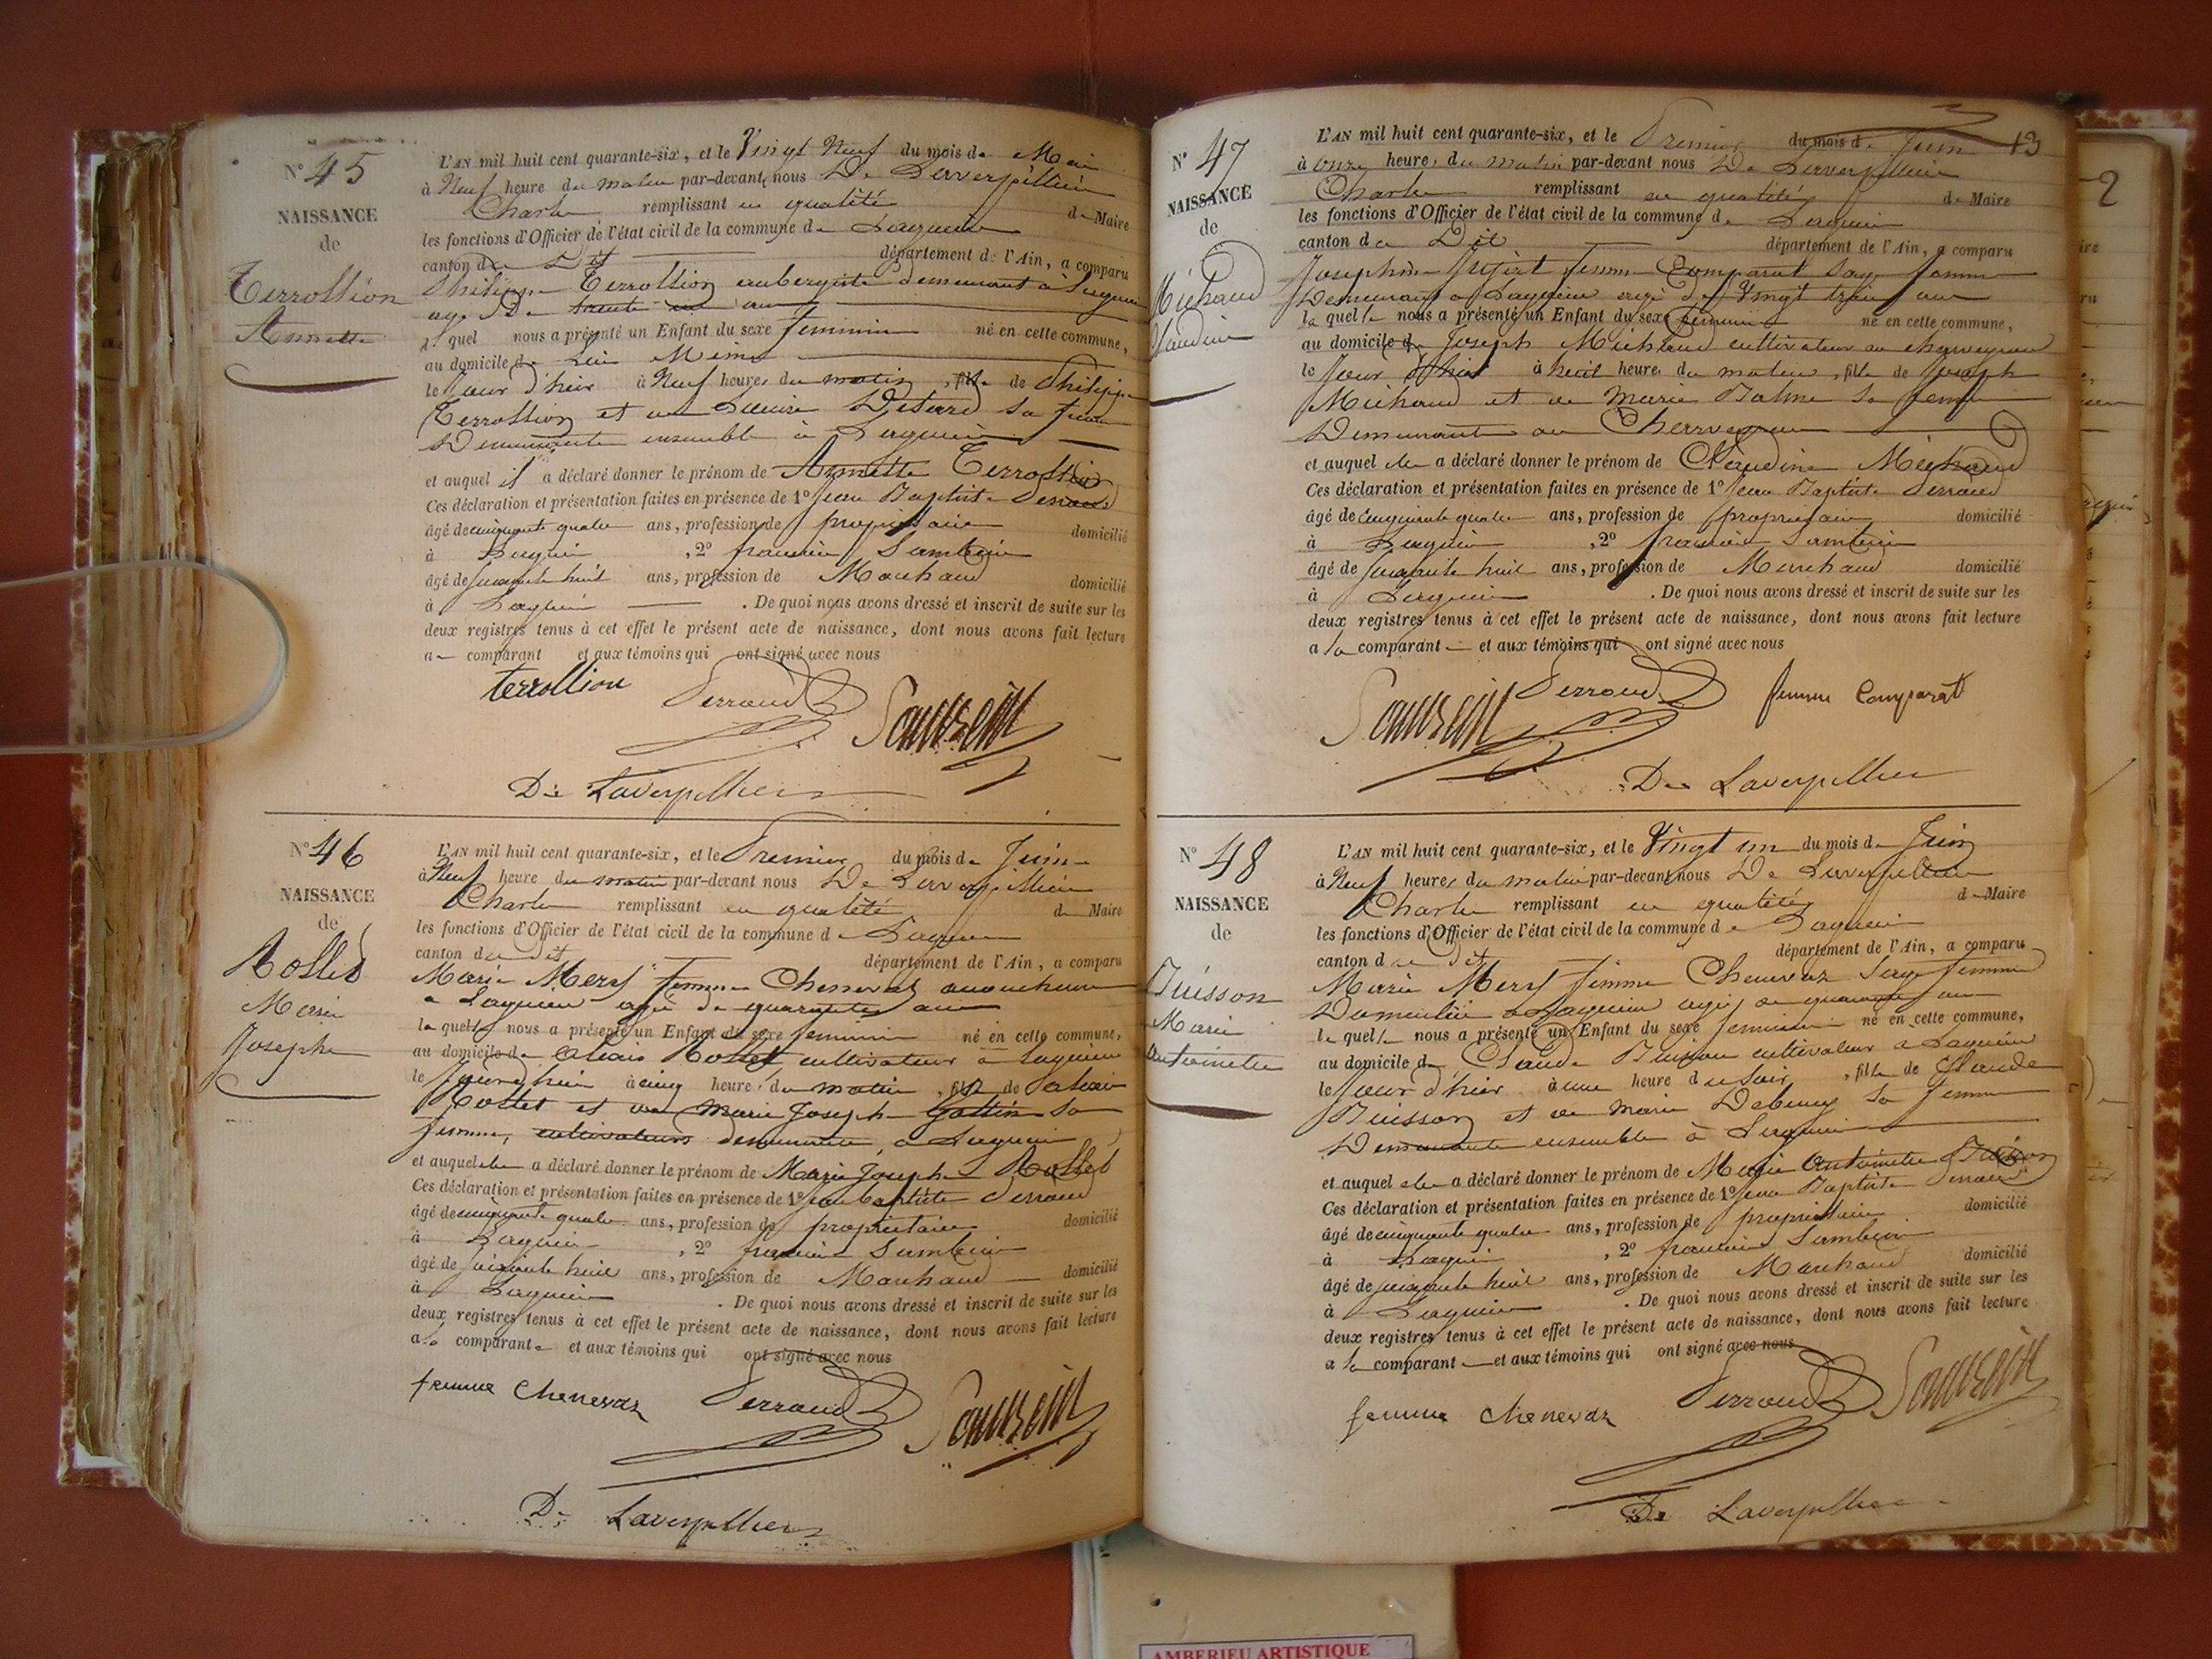 N° 45
NAISSANCE
de
Terrollion
Annette
L'AN mil huit cent quarante-six, et le Vingt Neuf du mois de Mai
à Neuf heure du matin par-devant nous De Laverpillière
Charle remplissant en qualité de Maire
les fonctions d'Officier de l'état civil de la commune de Lagnieu
canton de dit département de l'Ain, a comparu
Philippe Terrollion aubergiste demeurant à Lagnieu
agé De trente ans
lequel nous a présenté un Enfant du sexe feminin né en cette commune,
au domicile de Lui Même
le Jour d'hier à Neuf heures du matin, fille de Philippe
Terrollion et de sa femme
Demeurante ensemble à Lagnieu
et auquel il a déclaré donner le prénom de Annette Terrollion
Ces déclaration et présentation faites en présence de 1° Jean Baptiste Perraud
âgé de cinquante quatre ans, profession de propriétaire domicilié
à Lagnieu, 2°
âgé de huit ans, profession de Marchand domicilié
à Lagnieu. De quoi nous avons dressé et inscrit de suite sur les
deux registres tenus à cet effet le présent acte de naissance, dont nous avons fait lecture
a comparant et aux témoins qui ont signé avec nous
terrollion Perraud
De Laverpilliere
N° 46
NAISSANCE
de
Rollet
Marie
Josephe
L'AN mil huit cent quarante-six, et le Premier du mois de Juin
à Neuf heure du matin par-devant nous De Laverpillière
Charle remplissant en qualité de Maire
les fonctions d'Officier de l'état civil de la commune de Lagnieu
canton du dit département de l'Ain, a comparu
Marie Mery femme Chenevaz accoucheuse
a Lagnieu agé de quarante ans
la quelle nous a présenté un Enfant du sexe feminin né en cette commune,
au domicile de Rollet cultivateur à Lagnieu
le à cinq heure du matin, fille de
Rollet et de Marie Joseph sa
femme, cultivateurs demeurant a Lagnieu
et auquel elle a déclaré donner le prénom de Marie Joseph Rollet
Ces déclaration et présentation faites en présence de 1° Jean baptiste Perraud
âgé de cinquante quatre ans, profession de propriétaire domicilié
à Lagnieu, 2°
âgé de huit ans, profession de Marchand domicilié
à Lagnieu. De quoi nous avons dressé et inscrit de suite sur les
deux registres tenus à cet effet le présent acte de naissance, dont nous avons fait lecture
a la comparante et aux témoins qui ont signé avec nous
femme Chenevaz Perraud
De Laverpilliere
13
N° 47
NAISSANCE
de
Michaud
Claudine
L'AN mil huit cent quarante-six, et le Premier du mois de Juin
à onze heures du matin par-devant nous De Laverpillière
Charle remplissant en qualité de Maire
les fonctions d'Officier de l'état civil de la commune de Lagnieu
canton de Dit département de l'Ain, a comparu
Josephine femme Comparat sage femme
Demeurant a Lagnieu agé de Vingt trois ans
la quelle nous a présenté un Enfant du sexe feminin né en cette commune,
au domicile de Joseph Michaud cultivateur au
le Jour d'hier à huit heures du matin, fille de Joseph
Michaud et de Marie sa femme
Demeurant au
et auquel elle a déclaré donner le prénom de Claudine Michaud
Ces déclaration et présentation faites en présence de 1° Jean Baptiste Perraud
âgé de cinquante quatre ans, profession de propriétaire domicilié
à Lagnieu, 2°
âgé de huit ans, profession de Marchand domicilié
à Lagnieu. De quoi nous avons dressé et inscrit de suite sur les
deux registres tenus à cet effet le présent acte de naissance, dont nous avons fait lecture
a la comparant et aux témoins qui ont signé avec nous
Perraud femme Comparat
De Laverpilliere
N° 48
NAISSANCE
de
Buisson
Marie
Antoinette
L'AN mil huit cent quarante-six, et le Vingt un du mois de Juin
à Neuf heures du matin par-devant nous De Laverpillière
Charle remplissant en qualité de Maire
les fonctions d'Officier de l'état civil de la commune de Lagnieu
canton de dit département de l'Ain, a comparu
Marie Mery femme Chenevaz Sage femme
Domiciliée a Lagnieu agé de quarante ans
la quelle nous a présenté un Enfant du sexe feminin né en cette commune,
au domicile de Claude Buisson cultivateur a Lagnieu
le Jour d'hier à une heure du soir, fille de Claude
Buisson et de Marie sa femme
Demeurante ensemble à Lagnieu
et auquel elle a déclaré donner le prénom de Marie Antoinette Buisson
Ces déclaration et présentation faites en présence de 1° Jean Baptiste Perraud
âgé de cinquante quatre ans, profession de propriétaire domicilié
à Lagnieu, 2°
âgé de huit ans, profession de Marchand domicilié
à Lagnieu. De quoi nous avons dressé et inscrit de suite sur les
deux registres tenus à cet effet le présent acte de naissance, dont nous avons fait lecture
a la comparant et aux témoins qui ont signé avec nous
femme Chenevaz Perraud
De Laverpilliere
2
AMBERIEU ARTISTIQUE